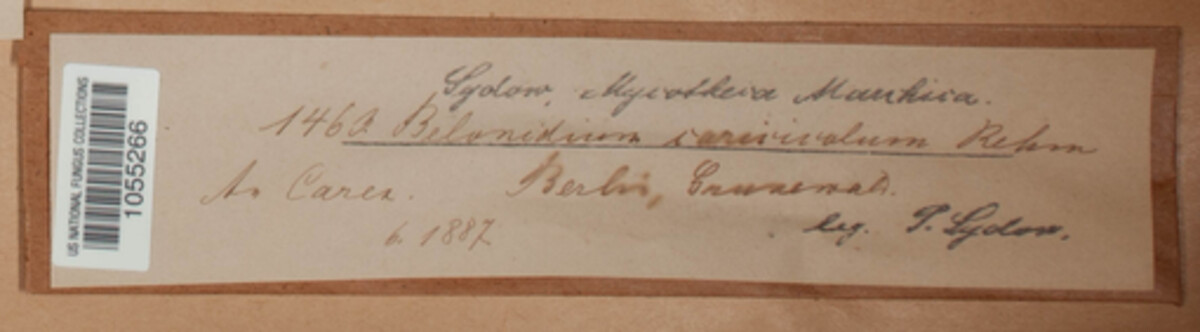 US NATIONAL FUNGUS COLLECTIONS
1055266
Sydow, Mycotheca Marchica.
1460 Belonidium caricicolum Rehm
An Carex. Berlin, Grunewald.
6. 1887
leg. P. Sydow.